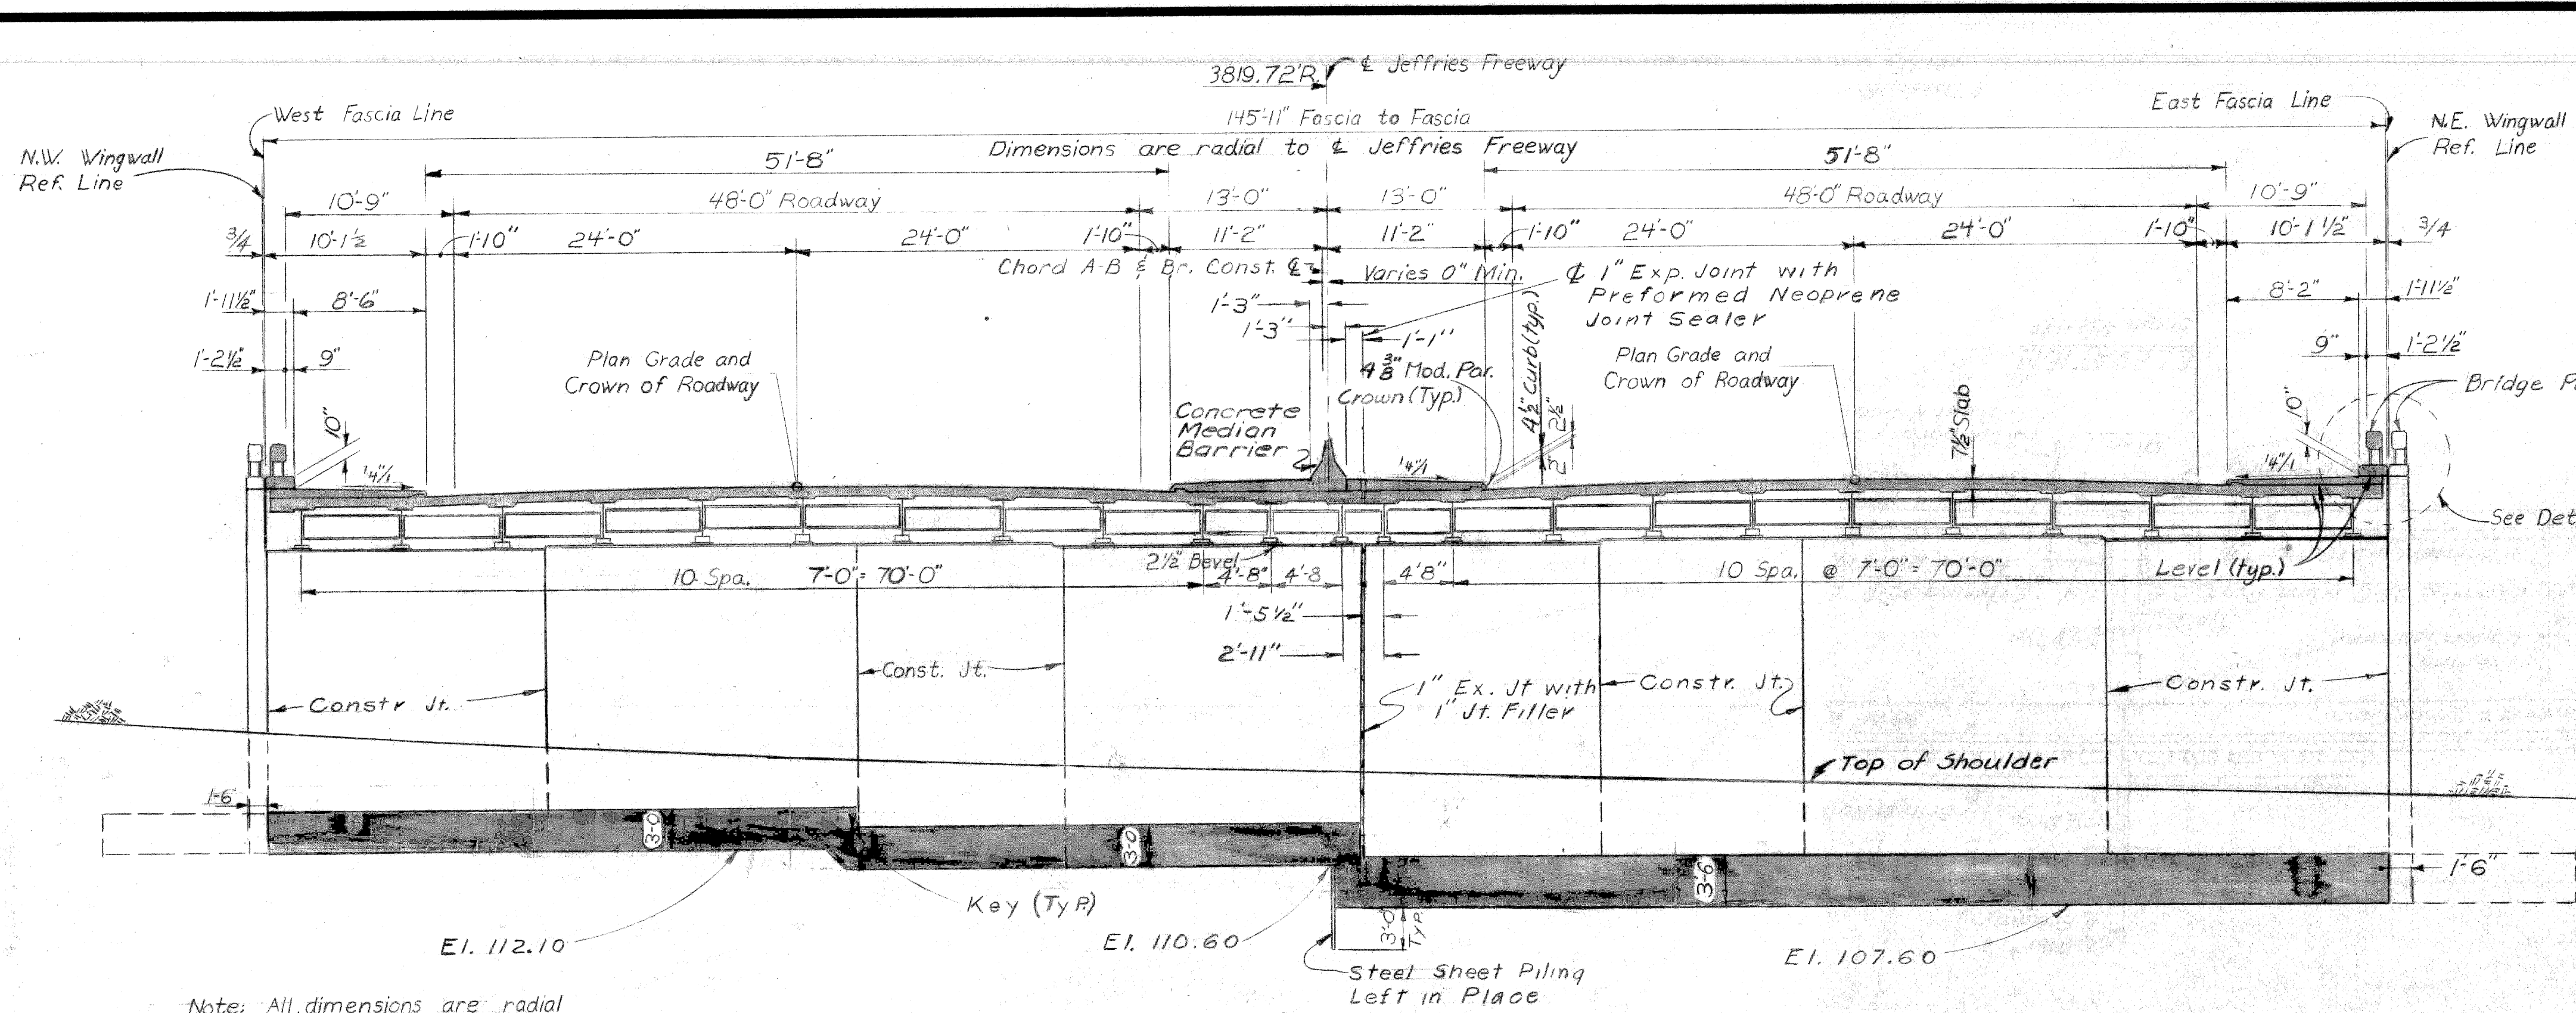 3819.72'R.
℄ Jeffries Freeway
West Fascia Line
145'-11" Fascia to Fascia
East Fascia Line
N.W. Wingwall
Ref. Line
51'-8"
Dimensions are radial to ℄ Jeffries Freeway
51'-8"
N.E. Wingwall
Ref. Line
10'-9"
48'-0" Roadway
13'-0"
13'-0"
48'-0" Roadway
10'-9"
3/4
10'-1 1/2
1'-10"
24'-0"
24'-0"
1'-10"
11'-2"
11'-2"
1'-10"
24'-0"
24'-0"
1'-10"
10'-1 1/2"
3/4
Chord A-B & Br. Const. ℄
Varies 0" Min.
℄ 1" Exp. Joint with
Preformed Neoprene
Joint Sealer
1'-11 1/2"
8'-6"
1'-3"
1'-3"
1'-1"
8'-2"
1'-11 1/2"
1'-2 1/2"
9"
Plan Grade and
Crown of Roadway
4 3/8" Mod. Par.
Crown (Typ.)
4 1/2" Curb (typ.)
2 1/2"
2"
Plan Grade and
Crown of Roadway
9"
1'-2 1/2"
Bridge
10"
Concrete
Median
Barrier
7 1/2" Slab
10"
1/4"/1
1/4"/1
1/4"/1
See
2 1/2" Bevel
10 Spa. 7'-0" = 70'-0"
4'-8"
4'-8
4'8"
10 Spa. @ 7'-0" = 70'-0"
Level (typ.)
1'-5 1/2"
2'-11"
Const. Jt.
Constr Jt.
1" Ex. Jt with
1" Jt. Filler
Constr. Jt.
Constr. Jt.
Top of Shoulder
1-6"
3-0
3-0
3'-6
1'-6"
Key (TYP.)
3'-0"
TYP.
El. 112.10
El. 110.60
El. 107.60
Steel Sheet Piling
Left in Place
Note: All dimensions are radial